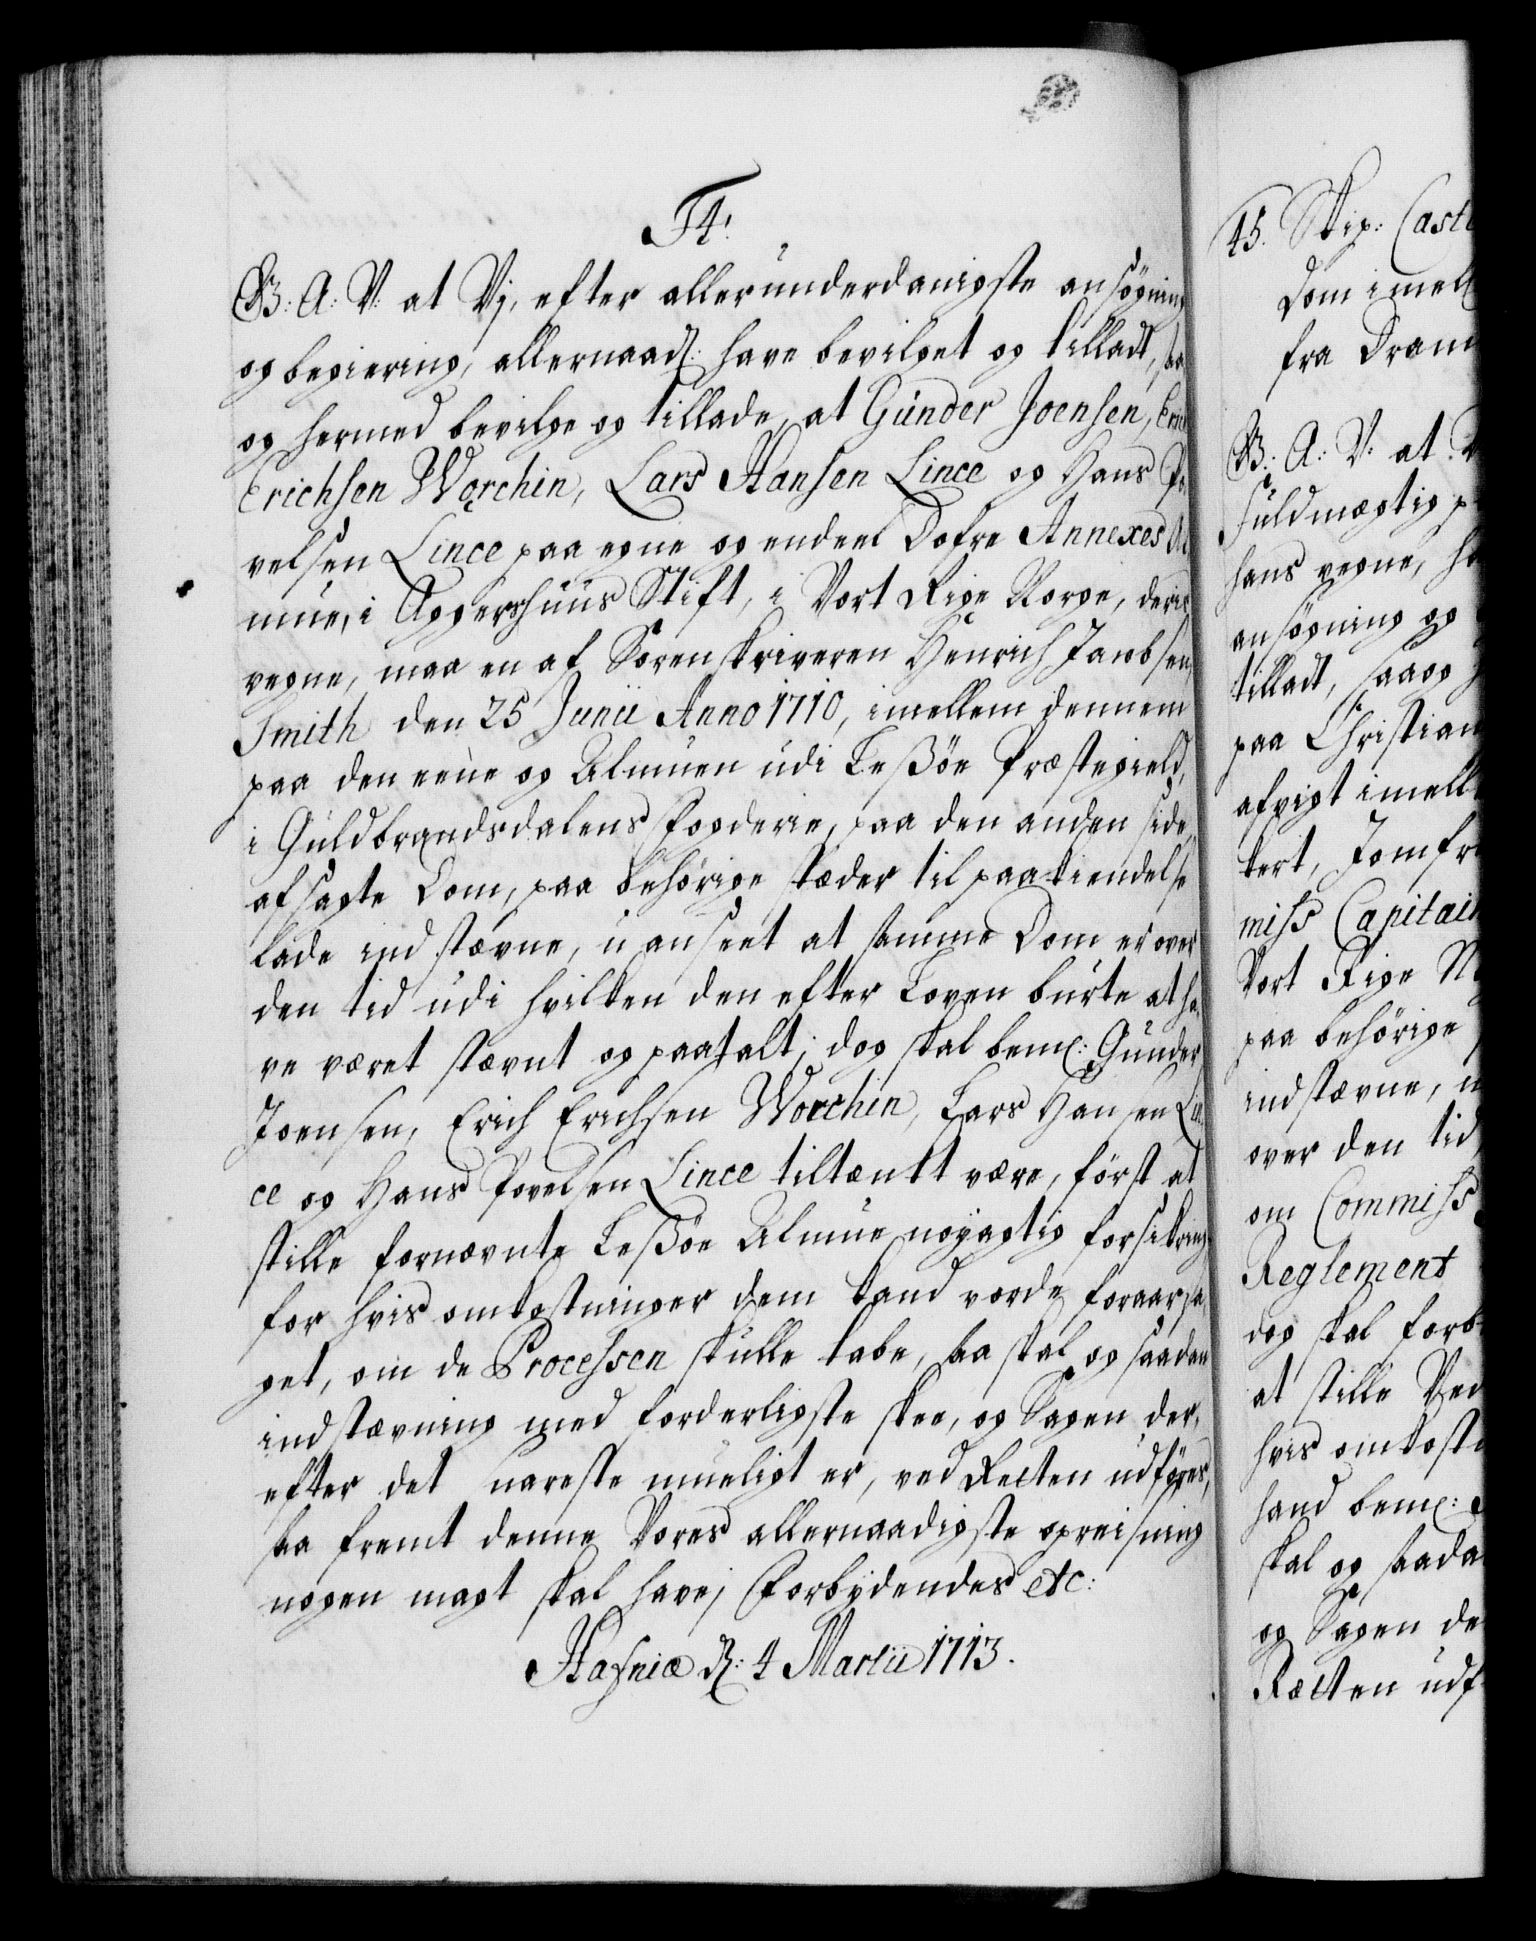 F4.
G: A: V: at Vj, efter allerunderdanigste ansøgning
og begiering, allernaadt: have bevilget og tilladt, saa
og hermed bevilge og tillade, at Gunder Joensen,
Erichsen Worchin, Lars Hansen Lince og Hans Po
velsen Lince paa egne og endeel Dofre Annexes Al
mue, i Aggershuus Stift, i Vort Rige Norge, deris
vegne, maa en af Sorenskriveren Henrich Jacobsen
Smith den 25 Junii Anno 1710, imellem dennem
paa den eene og Almuen udi Leßøe Præstegield,
i Guldbrandsdalens Fogderie, paa den anden side,
afsagte Dom, paa behörige stæder til paakiendelse
lade indstævne, uanseet at samme Dom er over
den tid udi hvilken den efter Loven burte at ha
ve været stævnt og paatalt; dog skal bemt: Gunder
Joensen, Erich Erichsen Worchin, Lars Hansen Lin
ce og Hans Povelsen Lince tiltænkt være, först at
stille fornævnte Leßøe Almue nøyagtig forsikring
for hvis omkostninger dem kand vorde foraarsa
get, om de Processen skulle tabe, saa skal og saadan
indstævning med forderligste skee, og Sagen der,
efter det snareste mueligt er, ved Retten udføres,
saa fremt denne Vores allernaadigste opreisning
nogen magt skal have; Forbydendes etc:
Hafniæ d: 4 Martii 1713.
45. Skip: Cast
Dom imell
fra Dram
G: A: V: at V
Fuldmægtig p
hans vegne, h
ansøgning og
tilladt, saa og h
paa Christian
afsigt imell
tert, Jomfr
miss Capitain
Vort Rige N
paa behörige
indstævne, u
over den tid
om Commiss
Reglement
dog skal forb
at stille Ved
hvis omkostn
hand bemt:
skal og saada
og Sagen de
Rætten udf